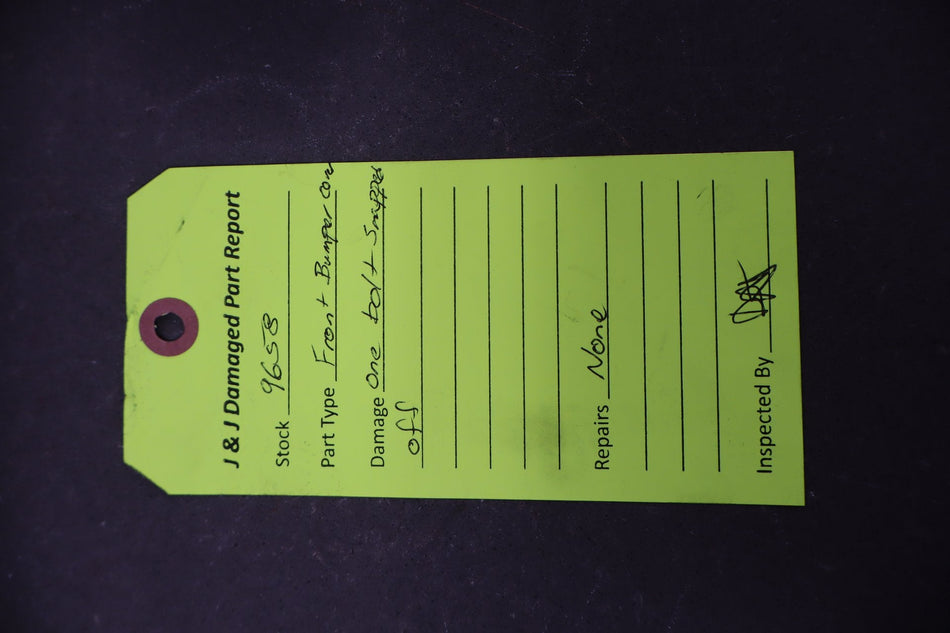 J & J Damaged Part Report
Stock 9658
Part Type Front Bumper
Damage One bolt Snapped
off
Repairs None
Inspected By